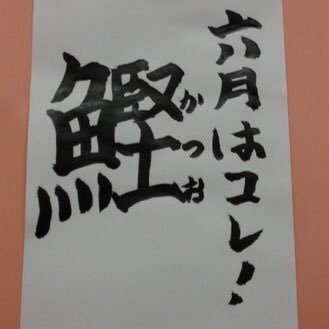 六月はコレ!
鰹
かつお